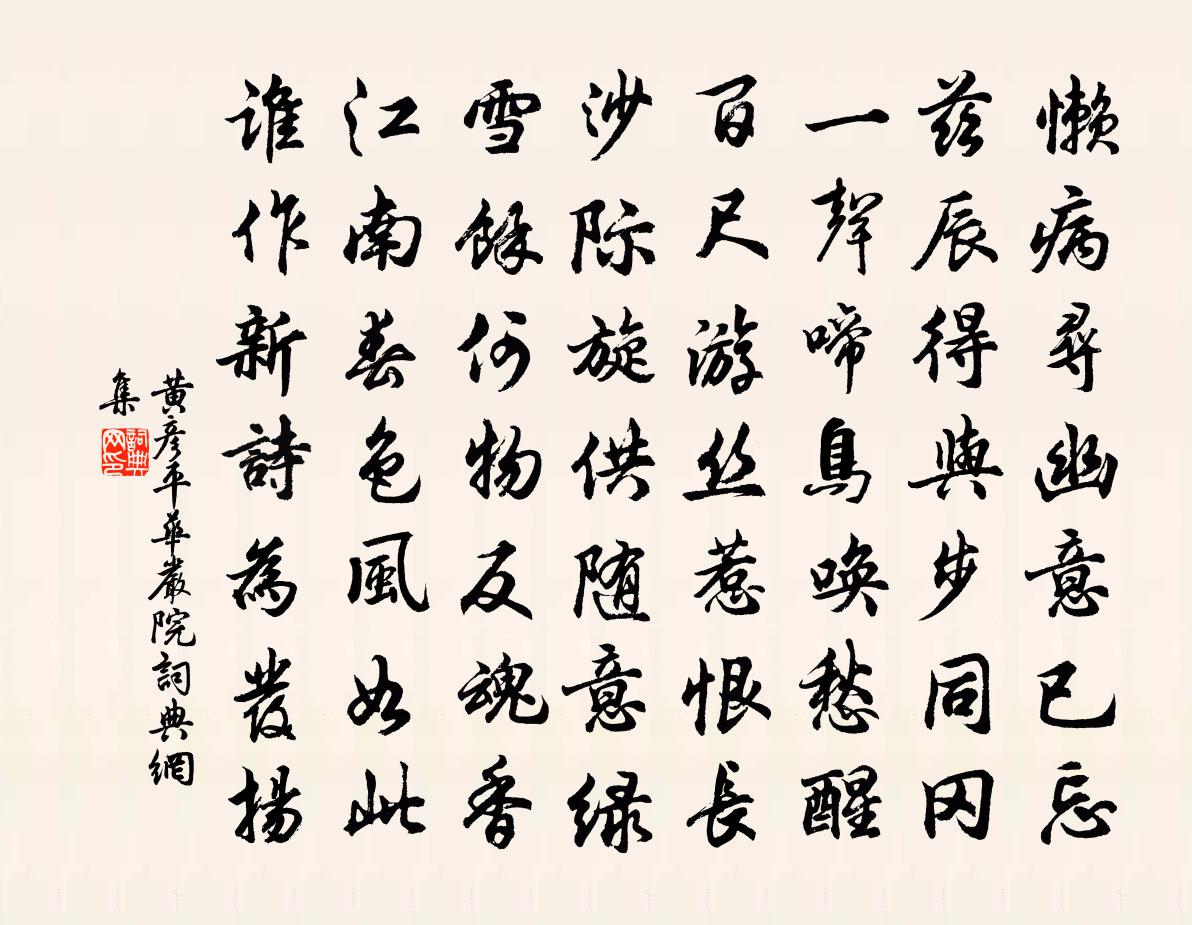 懒病寻幽意已忘
兹辰得与步同冈
一聲啼鳥唤愁醒
百尺游丝惹恨長
沙际旋供随意绿
雪餘何物反魂香
江南春色風如此
谁作新詩為發揚
黄彦平華嚴院詞典網
集
詞典网印